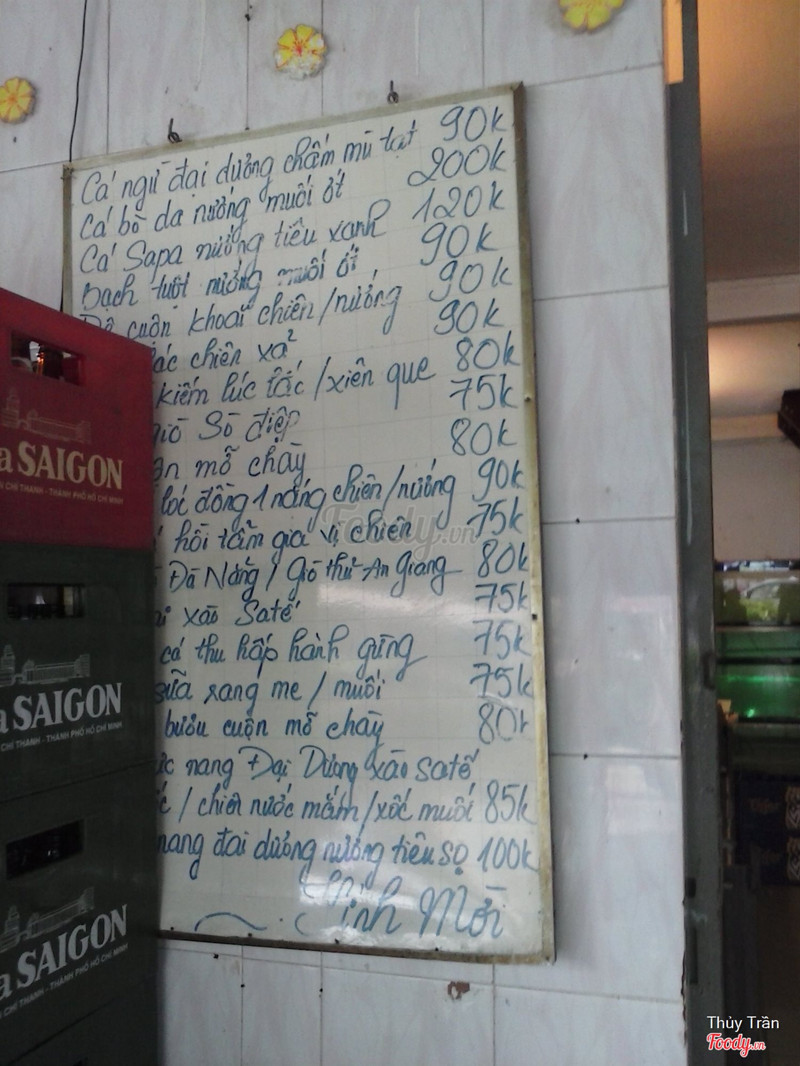 Cá ngừ đại dương chấm mù tạt 90k
Cá bò da nướng muối ớt 200k
Cá Sapa nướng tiêu xanh 120k
Bạch tuột nướng muối ớt 90k
cuộn khoai chiên/nướng 90k
chiên xả 90k
kiếm lúc lắc/xiên que 80k
giò Sò điệp 75k
mỡ chày 80k
lóc đồng 1 nắng chiên/nướng 90k
hồi tẩm gia vị chiên 75k
Đà Nẵng/Giò thủ An Giang 80k
xào Satế 75k
cá thu hấp hành gừng 75k
sữa rang me/muối 75k
bướu cuộn mỡ chày 80k
nang Đại Dương xào satế
/chiên nước mắm/xốc muối 85k
nang đại dương nướng tiêu sọ 100k
Kính Mời
SAIGON
CHÍ THANH - THÀNH PHỐ HỒ CHÍ MINH
SAIGON
CHÍ THANH - THÀNH PHỐ HỒ CHÍ MINH
SAIGON
CHÍ THANH - THÀNH PHỐ HỒ CHÍ MINH
Foody.vn
Thủy Trần
Foody.vn